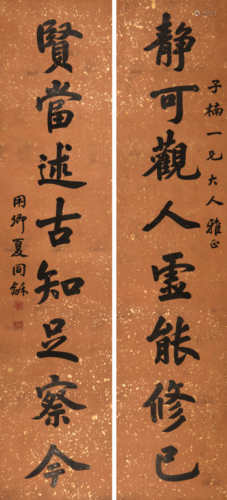 子楠一兄大人雅正
静可觀人虛能修己
賢當述古知足察今
用卿夏同龢